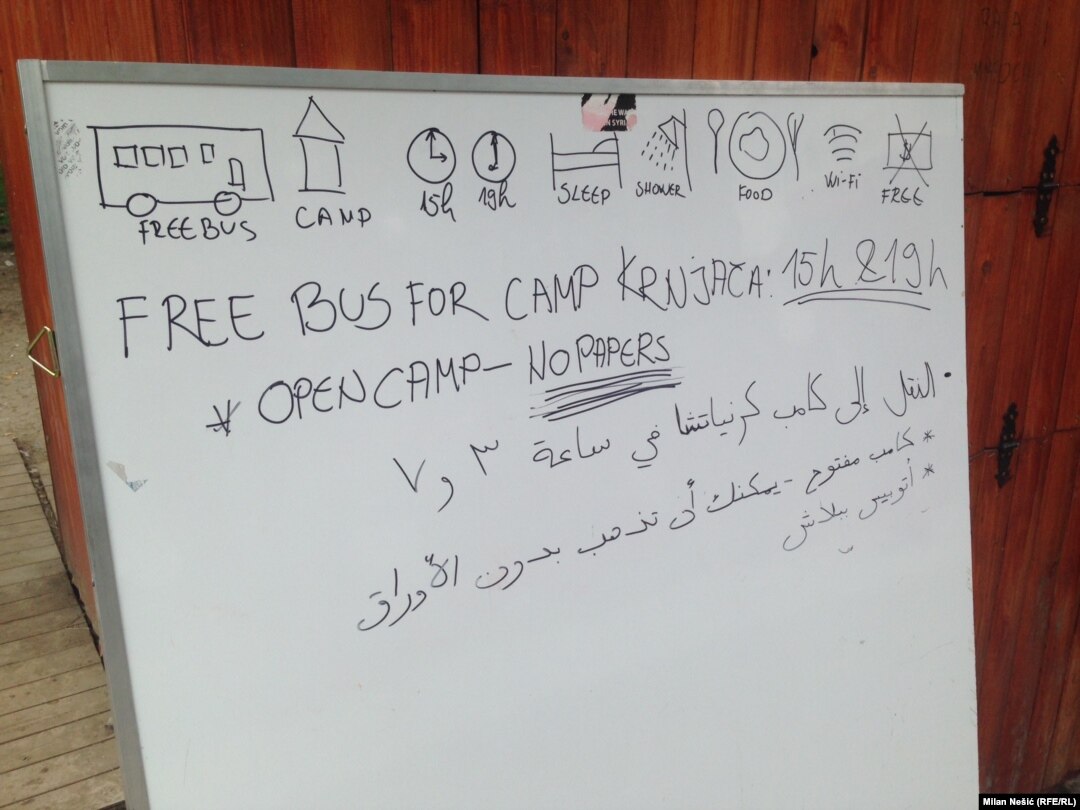 FREE BUS
CAMP
15h
19h
SLEEP
SHOWER
FOOD
Wi-Fi
$
FREE
FREE BUS FOR CAMP KRNJAČA: 15h & 19h
* OPEN CAMP - NO PAPERS
النقل إلى كامب كرنياتشا في ساعة ٣ و ٧
* كامب مفتوح - يمكنك أن تذهب بدون الأوراق
* أتوبيس ببلاش
Milan Nešić (RFE/RL)